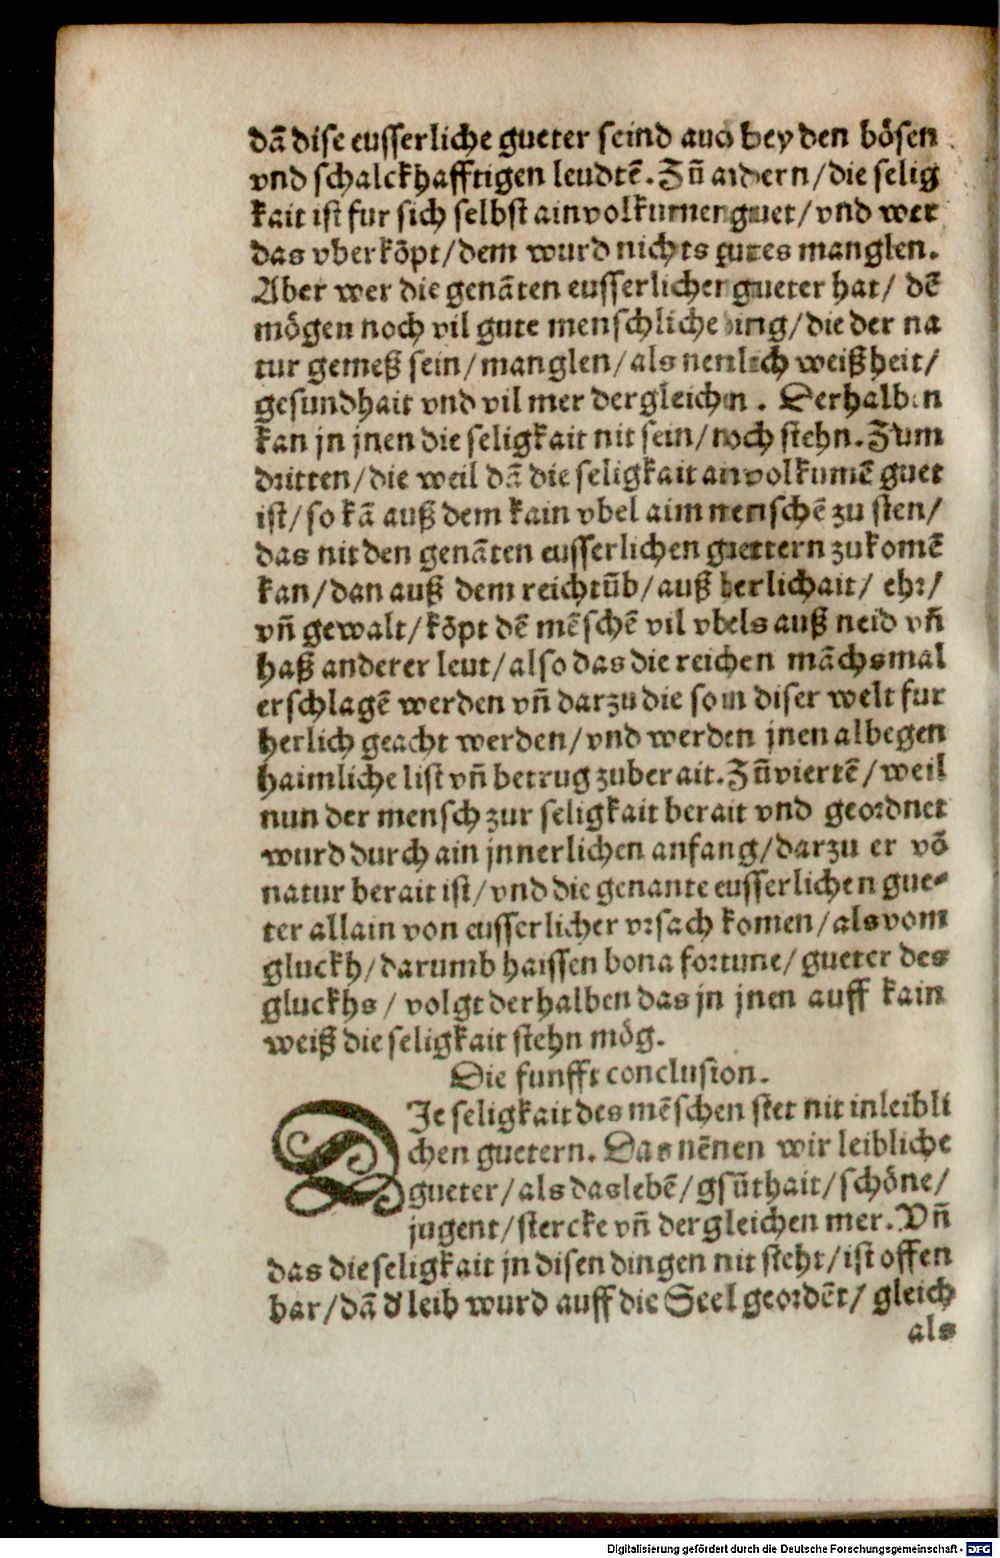 dā dise eusserliche gueter seind auch bey den bösen
vnd schalckhafftigen leudtē. Zū andern/die selig
kait ist fur sich selbst ain volkumer guet/vnd wer
das vberkōpt/dem wurd nichts gutes manglen.
Aber wer die genāten eusserlicher gueter hat/ dē
mögen noch vil gute menschliche ding/die der na
tur gemeß sein/manglen/als nemlich weißheit/
gesundhait vnd vil mer dergleichen . Derhalben
kan jn jnen die seligkait nit sein/noch stehn. Zum
dritten/die weil dā die seligkait ain volkumē guet
ist/so kā auß dem kain vbel aim menschē zu sten/
das nit den genāten eusserlichen guettern zukomē
kan/dan auß dem reichtūb/auß herlichait/ ehr/
vn̄ gewalt/kōpt dē mēschē vil vbels auß neid vn̄
haß anderer leut/also das die reichen māchsmal
erschlagē werden vn̄ darzu die so in diser welt fur
herlich geacht werden/vnd werden jnen albegen
haimliche list vn̄ betrug zuberait. Zū viertē/weil
nun der mensch zur seligkait berait vnd geordnet
wurd durch ain jnnerlichen anfang/darzu er vō
natur berait ist/vnd die genante eusserlichen gue-
ter allain von eusserlicher vrsach komen/als vom
gluckh/darumb haissen bona fortune/gueter des
gluckhs/ volgt derhalben das jn jnen auff kain
weiß die seligkait stehn mög.
Die funfft conclusion.
DIe seligkait des mēschen stet nit in leibli
chen guetern. Das nēnen wir leibliche
gueter/als das lebē/gsūthait/schöne/
jugent/stercke vn̄ dergleichen mer. Vn̄
das die seligkait jn disen dingen nit steht/ist offen
bar/dā d' leib wurd auff die Seel geordēt/ gleich
als
Digitalisierung gefördert durch die Deutsche Forschungsgemeinschaft - DFG